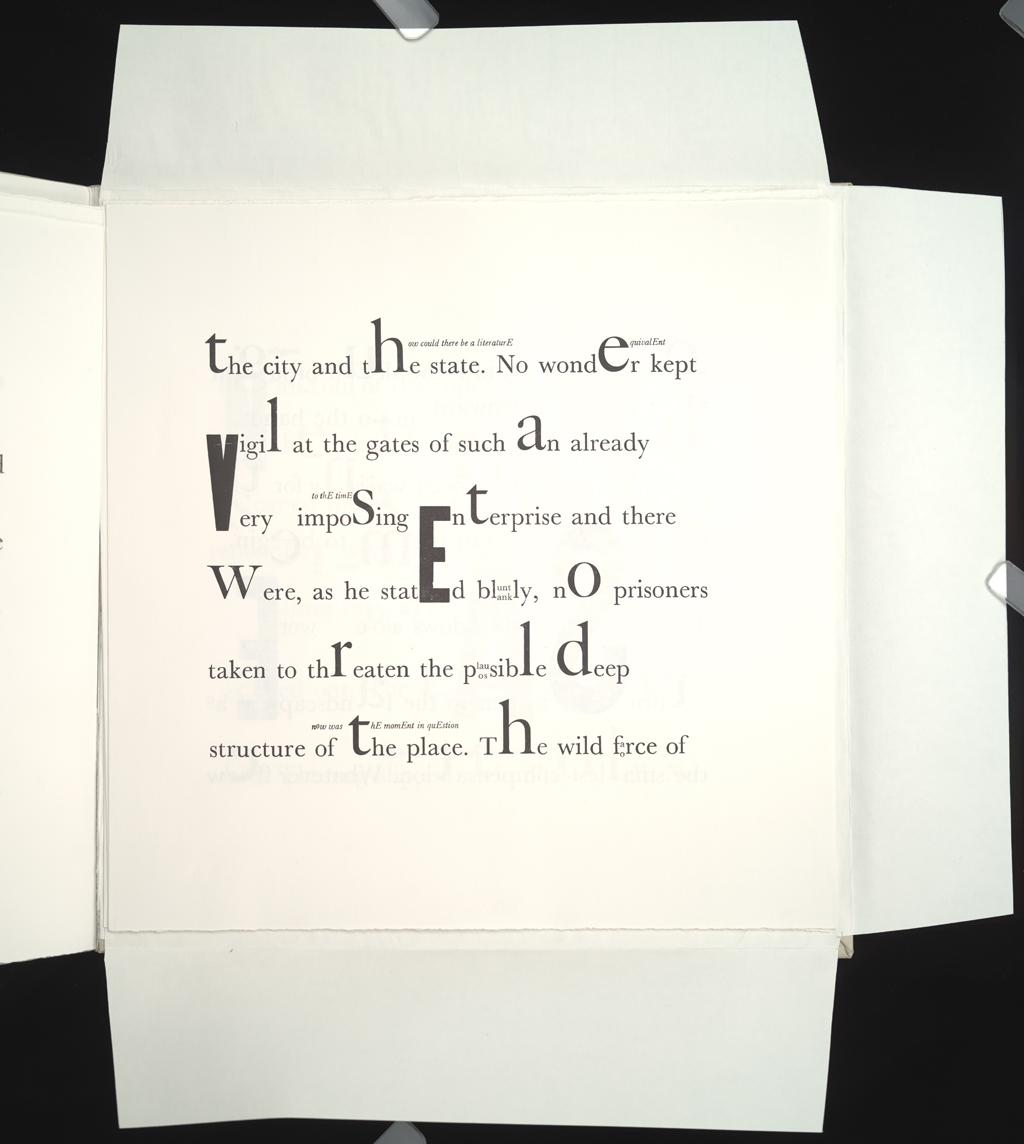 ow could there be a literaturE quivalEnt
the city and the state. No wonder kept
vigil at the gates of such an already
to thE timE
very impoSing EnterprisE and there
Were, as he statEd bluntly, nO prisoners
ankly
taken to threaten the plausible deep
os
now was hE momEnt in quEstion
structure of the place. The wild force of